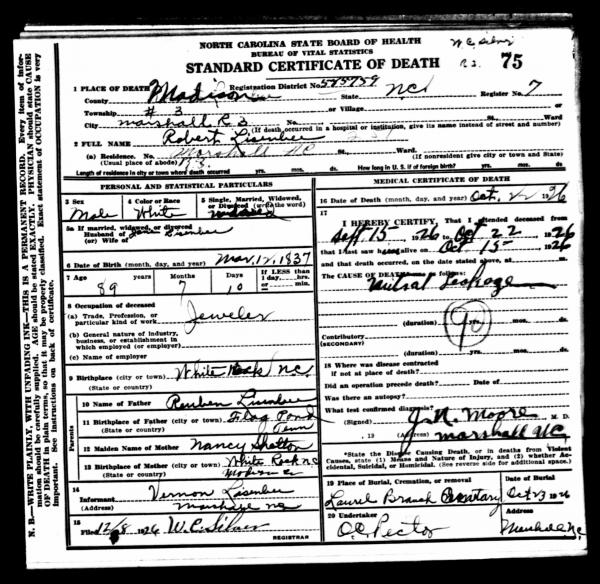 NORTH CAROLINA STATE BOARD OF HEALTH
BUREAU OF VITAL STATISTICS
STANDARD CERTIFICATE OF DEATH
75
1 PLACE OF DEATH Registration District No.
County Madison State NC Register No. 7
Township # 3 or Village or
City Marshall R 3 No. St., Ward
(If death occurred in a hospital or institution, give its name instead of street and number)
2 FULL NAME Robert Lisenbee
(a) Residence. No. Marshall NC St., Ward
(Usual place of abode) (If nonresident give city or town and State)
Length of residence in city or town where death occurred yrs. mos. ds. How long in U. S. if of foreign birth? yrs. mos. ds.
PERSONAL AND STATISTICAL PARTICULARS
3 Sex 4 Color or Race 5 Single, Married, Widowed, or Divorced (write the word)
Male White Widowed
5a If married, widowed, or divorced
Husband of
or Wife of
6 Date of Birth (month, day, and year) Mar, 12, 1837
7 Age Years Months Days If LESS than 1 day, hrs. or min.
89 7 10
8 Occupation of deceased
(a) Trade, Profession, or particular kind of work Jeweler
(b) General nature of industry, business, or establishment in which employed (or employer)
(c) Name of employer
9 Birthplace (city or town) White Rock NC
(State or country)
Parents
10 Name of Father Reuben Lisenbee
11 Birthplace of Father (city or town) Flag Pond
(State or country) Tenn
12 Maiden Name of Mother Nancy Shelton
13 Birthplace of Mother (city or town) White Rock NC
(State or country)
14 Informant Vernon Lisenbee
(Address) Marshall NC
15 Filed 12/8 1926 W. C. Silver
REGISTRAR
MEDICAL CERTIFICATE OF DEATH
16 Date of Death (month, day, and year) Oct. 22 1926
17 I HEREBY CERTIFY, That I attended deceased from
Sept 15, 1926 to Oct 22, 1926
that I last saw h alive on Oct 15, 1926
and that death occurred, on the date stated above, at m.
The CAUSE OF DEATH was as follows:
Mitral Leakage
(duration) yrs. mos. ds.
Contributory
(SECONDARY)
(duration) yrs. mos. ds.
18 Where was disease contracted
if not at place of death?
Did an operation precede death? Date of
Was there an autopsy?
What test confirmed diagnosis?
(Signed) J. N. Moore M. D.
, 19 (Address) Marshall NC.
*State the Disease Causing Death, or in deaths from Violent Causes, state (1) Means and Nature of Injury, and (2) whether Accidental, Suicidal, or Homicidal. (See reverse side for additional space.)
19 Place of Burial, Cremation, or removal Date of Burial
Laurel Branch Cemetary Oct 23 1926
20 Undertaker Address
O. C. Rector Marshall NC.
N. B.—WRITE PLAINLY, WITH UNFADING INK—THIS IS A PERMANENT RECORD. Every item of information should be carefully supplied. AGE should be stated EXACTLY. PHYSICIAN should state CAUSE OF DEATH in plain terms, so that it may be properly classified. Exact statement of OCCUPATION is very important. See instructions on back of certificate.